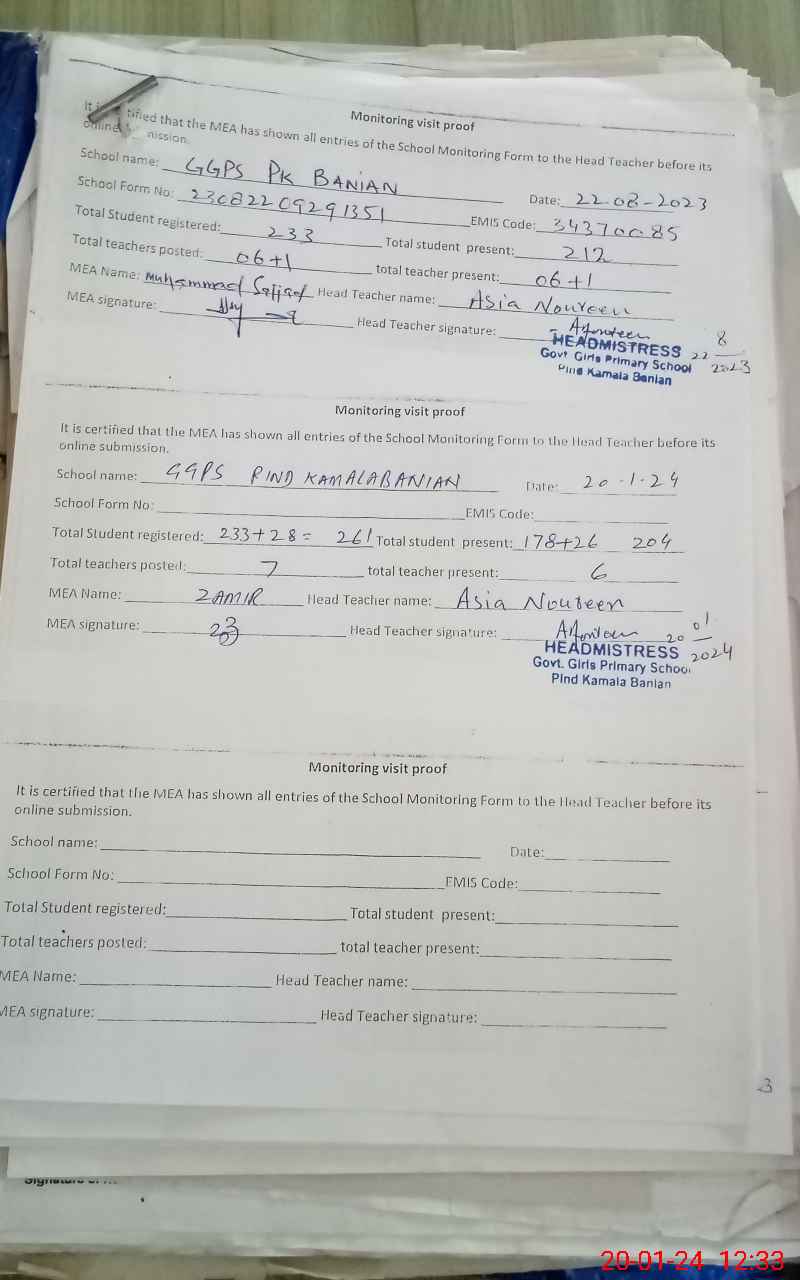 Monitoring visit proof
It is certified that the MEA has shown all entries of the School Monitoring Form to the Head Teacher before its
online submission.
School name: GGPS PK BANIAN Date: 22-08-2023
School Form No: 23082209291351 EMIS Code: 34370085
Total Student registered: 233 Total student present: 212
Total teachers posted: 06+1 total teacher present: 06+1
MEA Name: Muhammad Sajjad Head Teacher name: Asia Noureen
MEA signature: Head Teacher signature:
HEADMISTRESS 22 8
Govt Girls Primary School 2023
Pind Kamala Banian
Monitoring visit proof
It is certified that the MEA has shown all entries of the School Monitoring Form to the Head Teacher before its
online submission.
School name: GGPS PIND KAMALABANIAN Date: 20.1.24
School Form No: EMIS Code:
Total Student registered: 233+28= 261 Total student present: 178+26 204
Total teachers posted: 7 total teacher present: 6
MEA Name: ZAMIR Head Teacher name: Asia Noureen
MEA signature: Head Teacher signature: 20 01
HEADMISTRESS 2024
Govt. Girls Primary School
Pind Kamala Banian
Monitoring visit proof
It is certified that the MEA has shown all entries of the School Monitoring Form to the Head Teacher before its
online submission.
School name: Date:
School Form No: EMIS Code:
Total Student registered: Total student present:
Total teachers posted: total teacher present:
MEA Name: Head Teacher name:
MEA signature: Head Teacher signature:
3
20-01-24 12:33